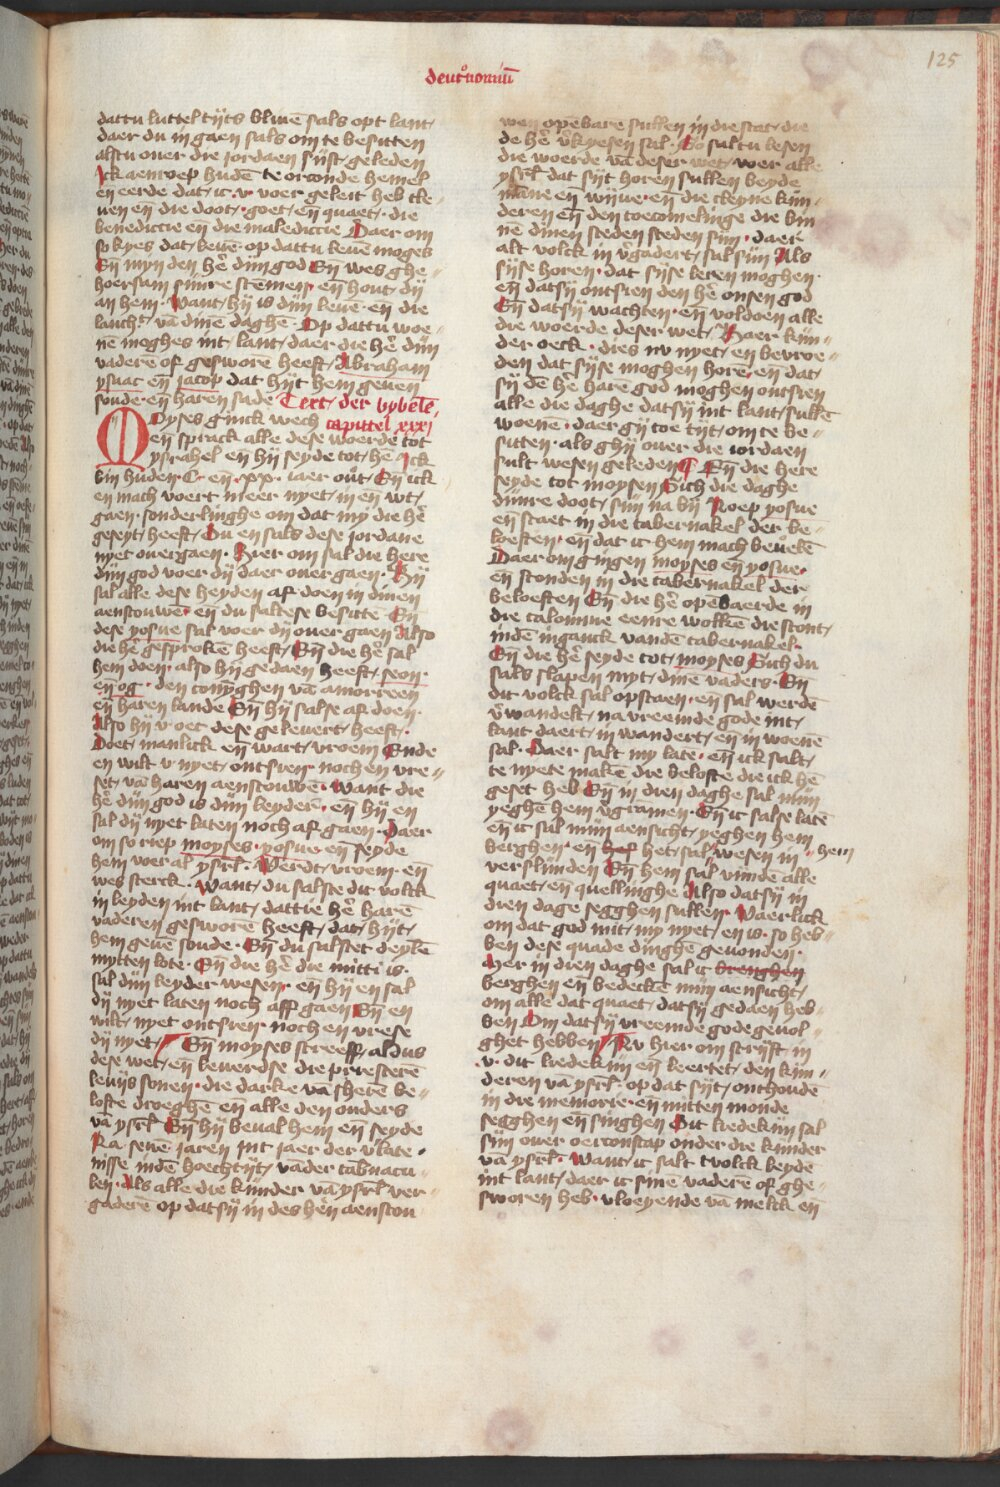 125
deut'nomiū
dattu luttel tijts bliuē sals opt lant
daer du in gaen sals om te besitten
alstu ouer die jordaen sijst geleden
Ick aenroep hudē te orconde hemel
en eerde dat ic v voer geleit heb tle-
uen eñ die doot goet eñ quaet die
benedictie eñ die maledictie Daer om
so kyes dat leuē op dattu leuē moges
Eñ myn den hē dijn god Eñ wes ghe-
hoersam sijnre stēmen eñ hout dij
an hem want hij is dijn leuē eñ die
lancht vā dinē daghē Op dattu woe-
nē moghes int lant daer die hē dijn
vaderē of gesworē heeft Abraham
ysaac eñ jacop dat hijt hem geuen
soude eñ haren sade Text der bybelē
Moyses ginck wech capittel xxxj
eñ sprack alle dese woerde tot
ysrahel eñ hij seyde tot hē Ick
bin huden C eñ xx iaer out Eñ ick
en mach voert meer nyet in eñ wt
gaen sonderlinghe om dat my die hē
geseyt heeft Du en sals dese jordane
nyet ouergaen Hier om sal die here
dijn god voer dij daer ouer gaen Hij
sal alle dese heyden af doen in dinen
aenscouwē eñ du saltese besittē Eñ
dese yosue sal voer dij ouer gaen Also
die hē gesprokē heeft Eñ die hē sal
hem doen also hij gedaen heeft seon
eñ og den conīghen vā amorreen
eñ haren lande Eñ hij salse af doen
Also hij v oec dese geleuert heeft
Doet manlick eñ wart vroem Ende
en wilt v nyet ontsien noch en vre-
set vā haren aenscouwē want die
hē dijn god is dijn leyder eñ hij en
sal dij nyet laten noch af gaen Daer
om so riep moyses yosue eñ seyde
hem voer al ysrl Werdt vroem eñ
wes sterck want du salste dit volck
in leyden int lant dattie hē harē
vaderen gesworē heeft dat hijt
hem geuē soude Eñ du salstet deylē
mytten lote Eñ die hē die mitti is
sal dijn leyder wesen eñ hij en sal
dij nyet laten noch aff gaen Eñ en
wilt nyet ontsien noch en vrese
dij nyet Eñ moyses screeff aldus
dese wet eñ leuerdse die priesterē
leuijs sonen die darke vā sheren be-
lofte droeghē eñ alle den ouders
vā ysrl Eñ hij beual hem eñ seyde
Na seuē jaren int jaer der vlate-
nisse indē hoechtijt vader tabnacu-
len Als alle die kijnder vā ysrl ver-
gaderē op datsij in des hēn aenscou
wen opēbare sullen in die stat die
de hē v'kyesen sal So saltu lesen
die woerde vā deser wet voer alle
ysrl dat sijt horen sullen beyde
māne eñ wijue eñ die cleyne kijn-
deren eñ den toecomelinge die bin
nē dinen steden steden sijn daer
alt volck in v'gadert sal sijn Als
sijse horen dat sijse leren moghen
eñ datsij ontsien den hē onsen god
Eñ datsij wachten eñ voldoen alle
die woerde deser wet Haer kijn-
der oeck dies nv nyet en bevroe-
den dat sijse moghen horē eñ dat
sij dē hē harē god moghen ontsien
alle die daghe datsij int lant sullē
woene daer gij toe tijt om te be-
sitten als ghij ouer die iordaen
sult wesen geleden Eñ die here
seyde tot moysen Sich die daghe
dijnre doot sijn na bij Roep yosue
eñ staet in die tabernakel der be-
loeften eñ dat ic hem mach beuelē
Daer om gingen moyses eñ yosue
eñ stonden in die tabernakel der
beloeften Eñ die hē opēbaerde in
die calomne eenre wolkē die stont
indē inganck vandē tabernakel
Eñ die hē seyde tot moyses Sich du
sals slapen myt dinē vaders Eñ
dit volck sal opstaen eñ sal werdē
v'wandelt na vreemde gode int
lant daert in wandert eñ in woenē
sal Daer salt my latē eñ ick salt
te nyete makē die belofte die ick hē
geset heb Eñ in dien daghe sal mijn
yeghē hem v'gramen Eñ ic salse latē
eñ ic sal mijn aensicht yeghen hem
berghen eñ het sal wesen in hem
verslijnden Eñ hem sal vijnden alle
quaet eñ quellinghe Also datsij in
dien dage segghen sullen Waerlick
om dat god mit my nyet en is so heb-
ben dese quade dinghē geuonden
Mer in dien daghe sal ic brenghen
berghen eñ bedeckē mijn aensicht
om alle dat quaet datsij gedaen heb-
ben Om datsij vreemde gode geuol-
ghet hebben Nv hier om scrijft in
v dit liedekijn eñ leertet den kijn-
deren vā ysrl op dat sijt onthoudē
in die memorie eñ mitten monde
segghen eñ singhen Dit liedekijn sal
sijn ouer oerconscap onder die kijnder
vā ysrl Want ic salt tvolck leyde
int lant daer ic sinē vaderē of ghe-
sworen heb vloeyende vā melck eñ